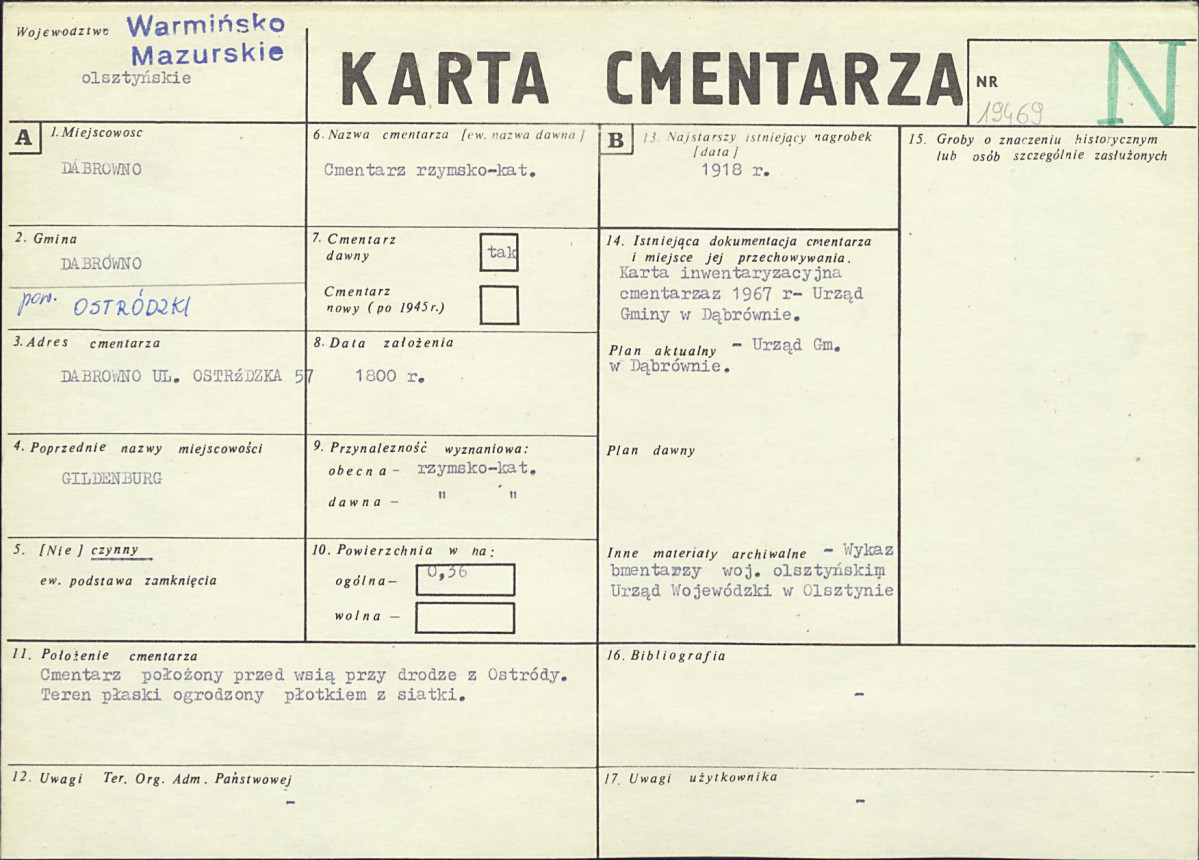 Województwo Warmińsko
Mazurskie
olsztyńskie
KARTA CMENTARZA
NR
19469
N
A
1. Miejscowosc
DĄBROWNO
2. Gmina
DĄBRÓWNO
pow. OSTRÓDZKI
3. Adres cmentarza
DĄBROWNO UL. OSTRźDZKA 57
4. Poprzednie nazwy miejscowości
GILDENBURG
5. [Nie] czynny
ew. podstawa zamknięcia
6. Nazwa cmentarza [ew. nazwa dawna]
Cmentarz rzymsko-kat.
7. Cmentarz
dawny
tak
Cmentarz
nowy (po 1945 r.)
8. Data założenia
1800 r.
9. Przynależność wyznaniowa:
obecna - rzymsko-kat.
dawna - " "
10. Powierzchnia w ha:
ogólna - 0,36
wolna -
B
13. Najstarszy istniejący nagrobek
[data]
1918 r.
14. Istniejąca dokumentacja cmentarza
i miejsce jej przechowywania.
Karta inwentaryzacyjna
cmentarzaz 1967 r- Urząd
Gminy w Dąbrównie.
Plan aktualny - Urząd Gm.
w Dąbrównie.
Plan dawny
Inne materiały archiwalne - Wykaz
bmentarzy woj. olsztyńskim
Urząd Wojewódzki w Olsztynie
15. Groby o znaczeniu historycznym
lub osób szczególnie zasłużonych
11. Położenie cmentarza
Cmentarz położony przed wsią przy drodze z Ostródy.
Teren płaski ogrodzony płotkiem z siatki.
12. Uwagi Ter. Org. Adm. Państwowej
-
16. Bibliografia
-
17. Uwagi użytkownika
-